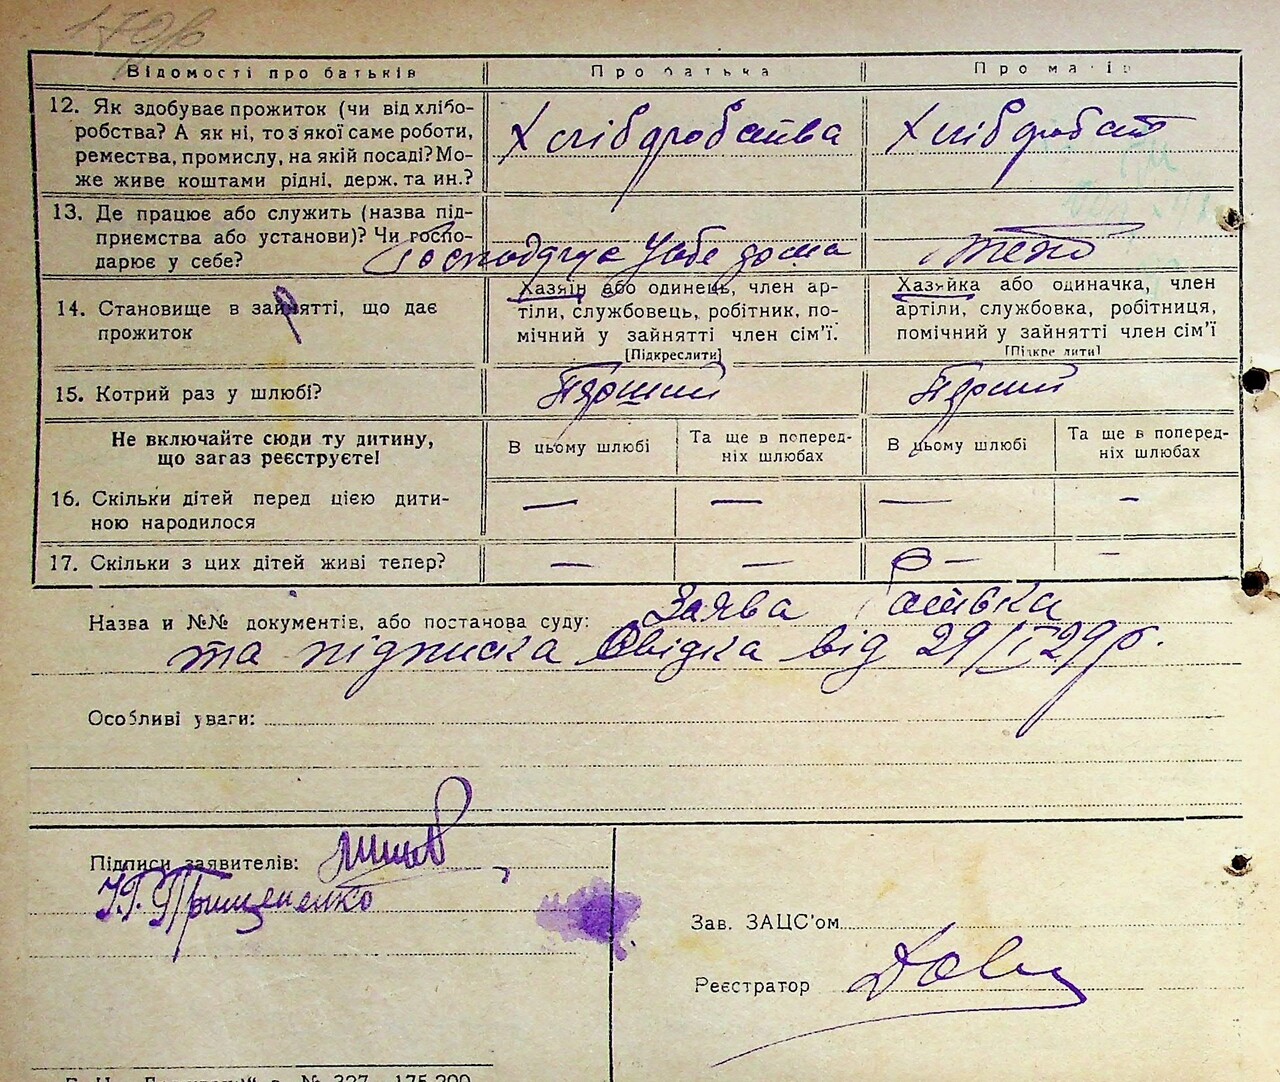 Відомості про батьків Про батька Про матір
12. Як здобуває прожиток (чи від хлібо-
робства? А як ні, то з якої саме роботи,
ремества, промислу, на якій посаді? Мо-
же живе коштами рідні, держ. та ин.?
Хліборобства Хліборобст
13. Де працює або служить (назва під-
приємства або установи)? Чи госпо-
дарює у себе?
Господарює у себе дома теж
14. Становище в зайнятті, що дає
прожиток
Хазяїн або одинець, член ар-
тіли, службовець, робітник, по-
мічний у зайнятті член сім'ї.
[Підкреслити]
Хазяйка або одиначка, член
артіли, службовка, робітниця,
помічний у зайнятті член сім'ї
[Підкреслити]
15. Котрий раз у шлюбі? Перший Перший
Не включайте сюди ту дитину,
що загаз реєструєте!
В цьому шлюбі
Та ще в поперед-
ніх шлюбах
В цьому шлюбі
Та ще в поперед-
ніх шлюбах
16. Скільки дітей перед цією дити-
ною народилося
— — — –
17. Скільки з цих дітей живі тепер? — — – –
Назва и №№ документів, або постанова суду: Заява батька
та підписка Свідка від 29/I 29 р.
Особливі уваги:
Підписи заявителів:
Грищененко
Зав. ЗАЦС'ом
Реєстратор
№ 327 175.200